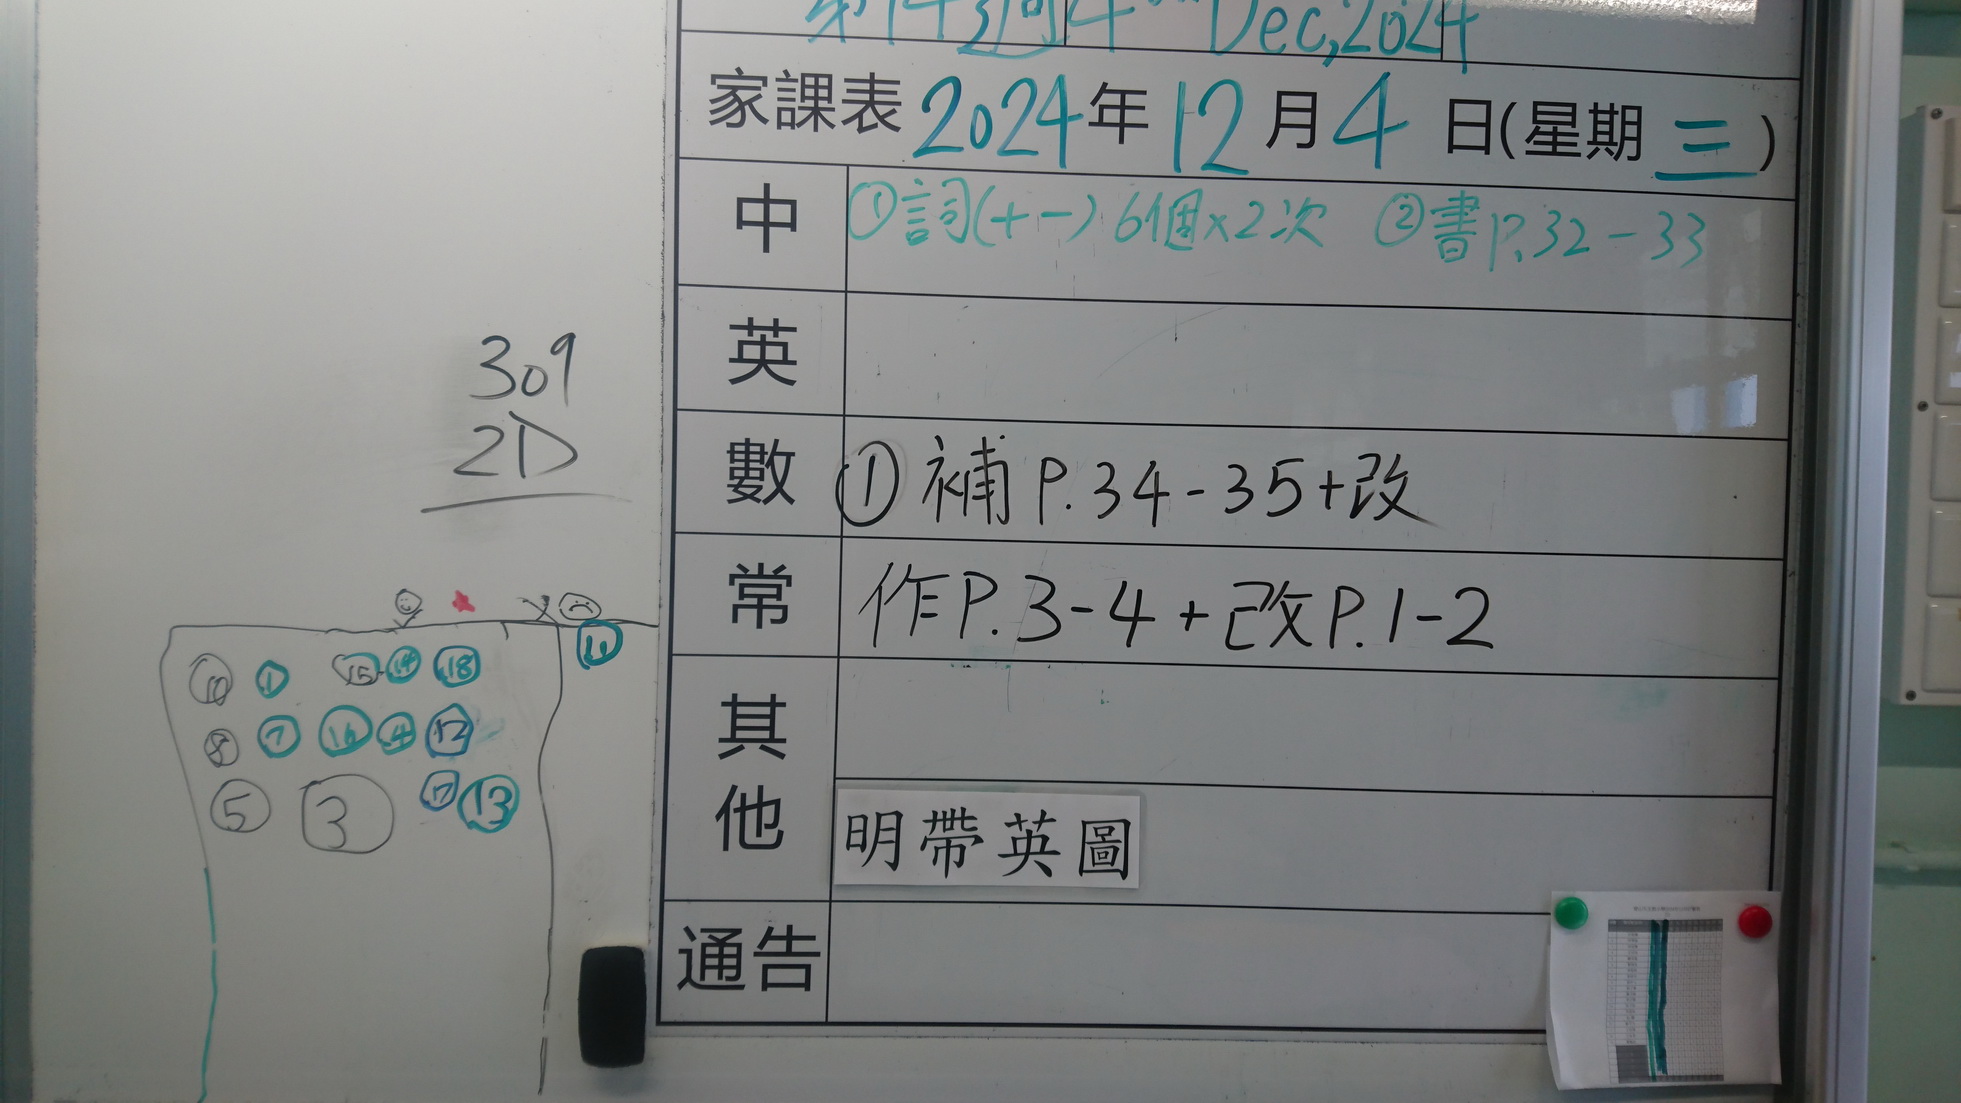 第14週 4th Dec, 2024
家課表 2024年12月4日(星期三)
中 ①詞(十一)6個×2次 ②書P.32-33
英
數 ①補P.34-35+改
常 作P.3-4+改P.1-2
其他
明帶英圖
通告
309
2D
10 1 15 14 18 11
8 7 16 4 12
5 3 17 13